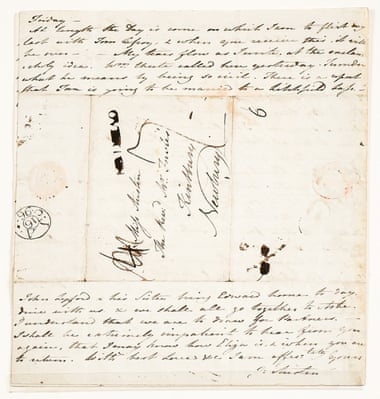 Friday —
At length the Day is come on which I am to flirt my
last with Tom Lefroy, & when you receive this it will
be over — My tears flow as I write, at the melan-
choly idea. Wm Chute called here yesterday. I wonder
what he means by being so civil. There is a report
that Tom is going to be married to a Litchfield Lass —
Miss Austen
The Revd Mr Fowle's
Kintbury
Newbury
6
John Lyford & his Sister bring Edward home to day
dine with us, & we shall all go together to Ashe.
I understand that we are to draw for Partners. —
I shall be extremely impatient to hear from you
again, that I may know how Eliza is, & when you are
to return. With best Love &c I am affectely yours
J. Austen